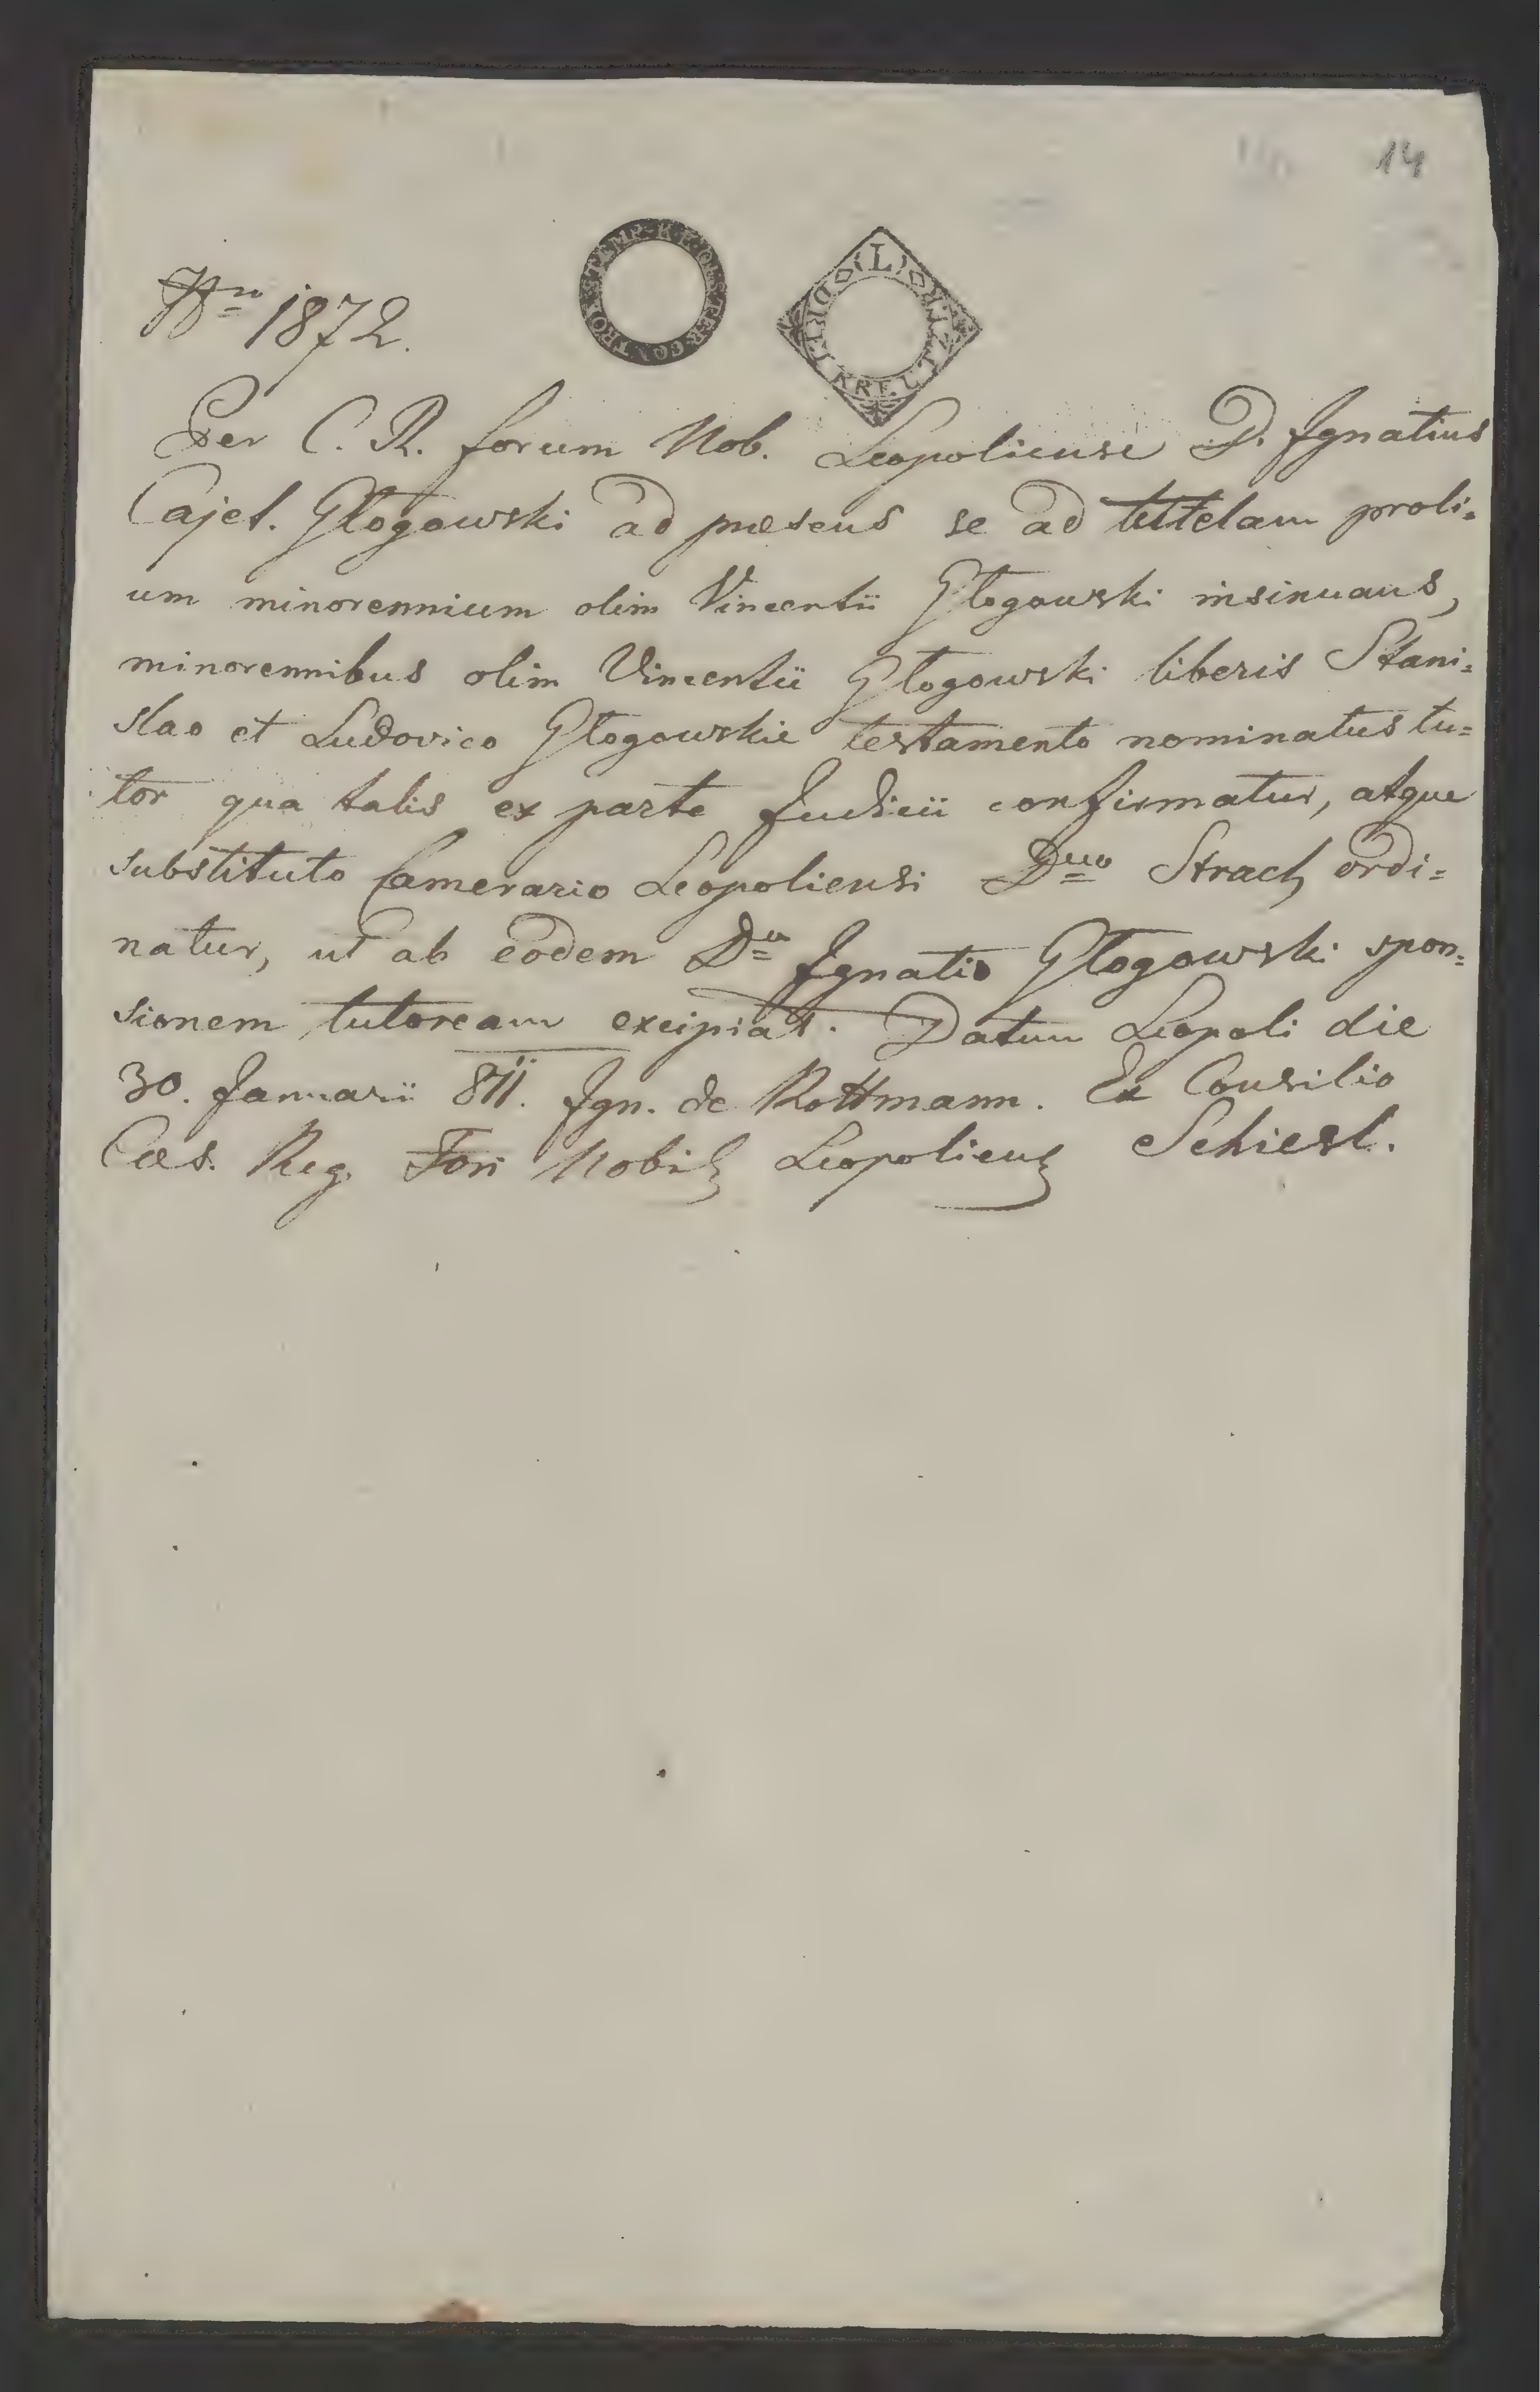 14
STEMP. K. K. OESTER. CONTROL
(L) DREI KREUTZER
Nrn 1872.
Per C. R. forum Nob. Leopoliense D. Ignatius
Cajet. Głogowski ad præsens se ad tutelam proli=
um minorennium olim Vincentii Głogowski insinuans,
minorennibus olim Vincentii Głogowski liberis Stani=
slao et Ludovico Głogowskie testamento nominatus tu=
tor qua talis ex parte Judicii confirmatur, atque
substituto Camerario Leopoliensi Dno Strach ordi=
natur, ut ab eodem Do Ignatio Głogowski spon=
sionem tutoream excipiat. Datum Leopoli die
30. Januarii 811. Ign. de Rottmann. Ex Consilio
Cæs. Reg. Fori Nobil Leopoliens Schiesl.